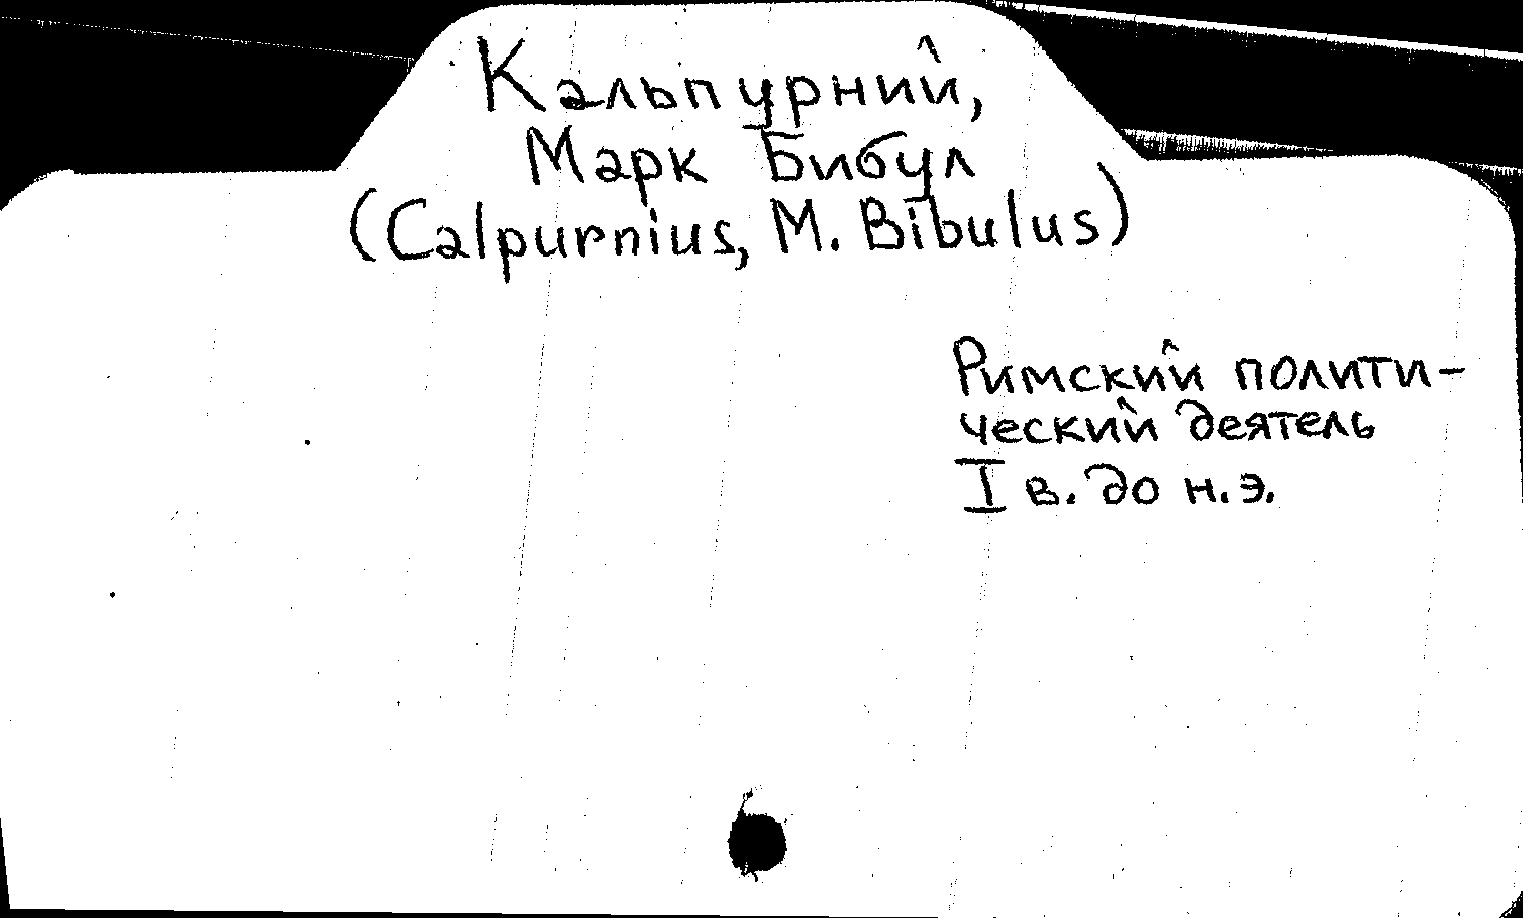 Кальпурний,
Марк Бибул
(Calpurnius, M. Bibulus)
Римский полити-
ческий деятель
I в. до н.э.